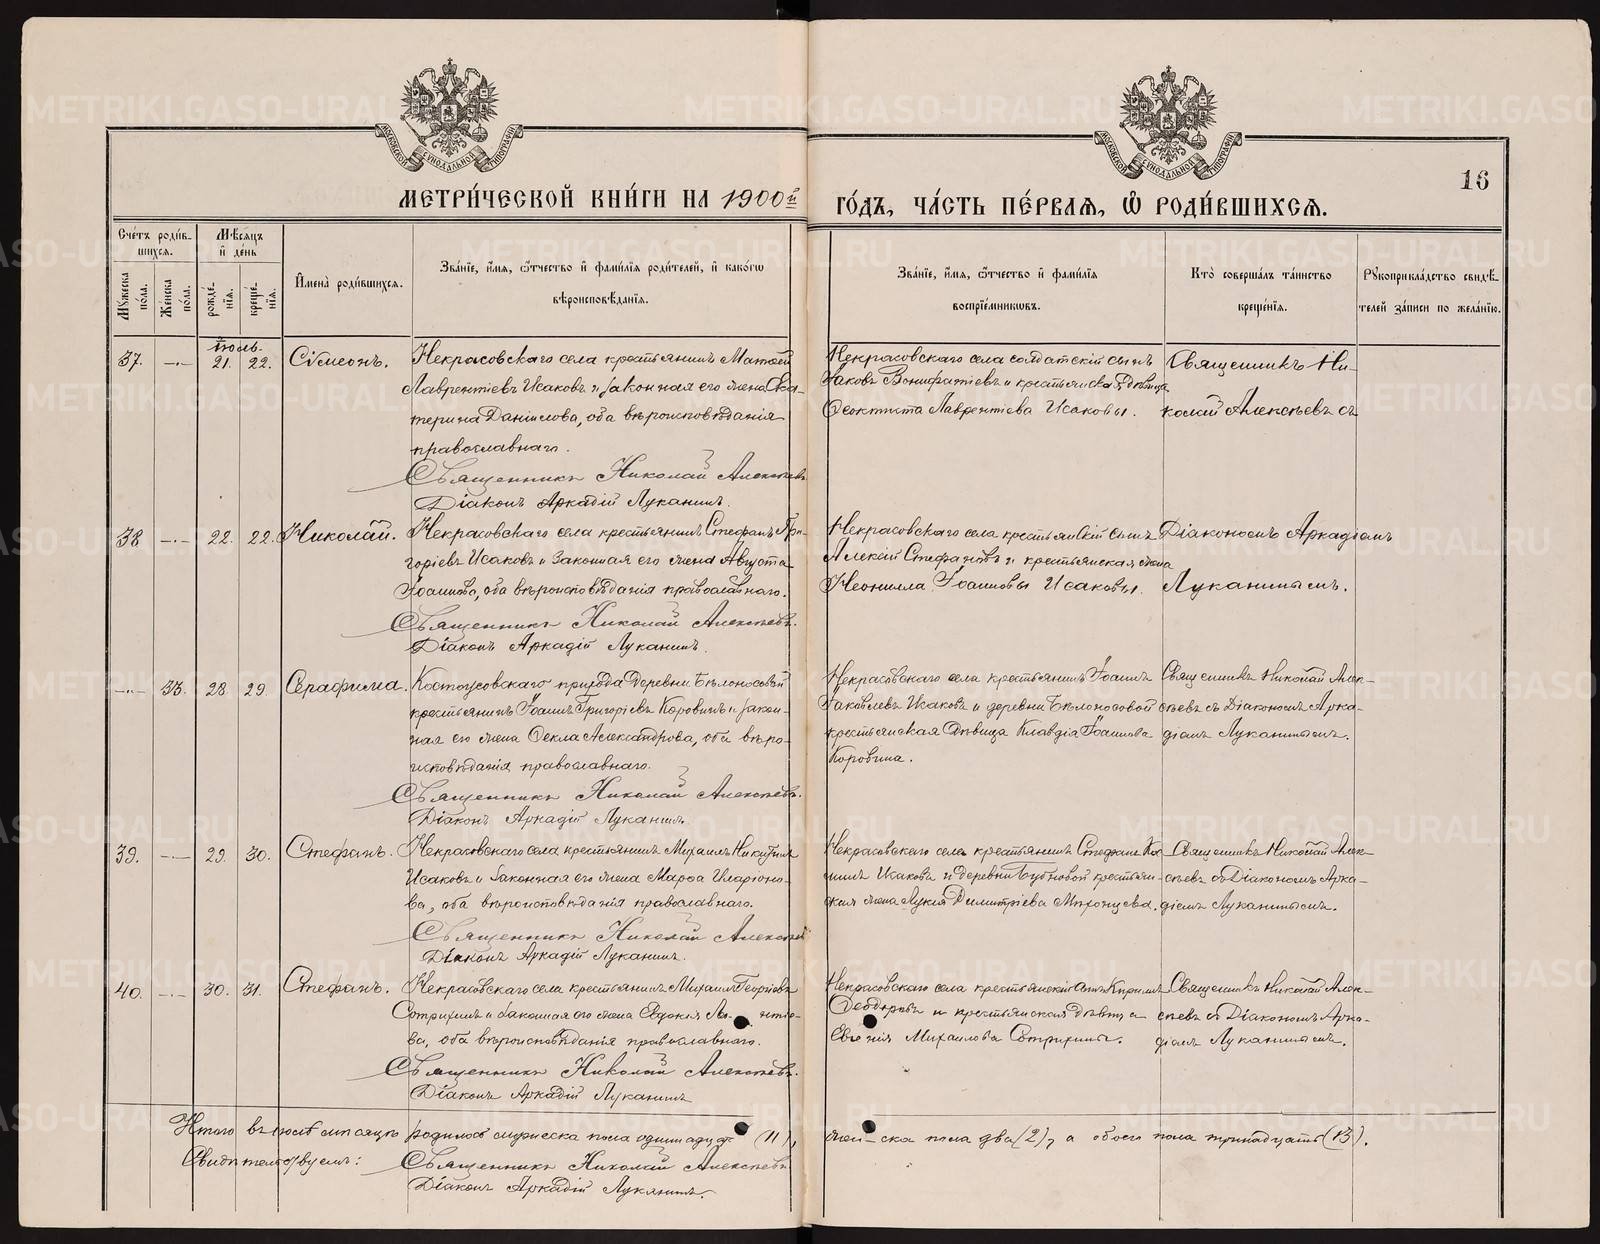 МОСКОВСКОЙ СѴНОДАЛЬНОЙ ТИПОГРАФІИ
МОСКОВСКОЙ СѴНОДАЛЬНОЙ ТИПОГРАФІИ
16
МЕТРИ́ЧЕСКОЙ КНИ́ГИ НА 1900й
ГО́ДЪ, ЧА́СТЬ ПЕ́РВАЯ, Ѡ РОДИ́ВШИХСЯ.
Сче́тъ роди́в-
шихся.
Мѣ́сяцъ
и де́нь
Мꙋ́жеска по́ла.
Же́нска по́ла.
рожде́-нїя.
креще́-нїя.
И҆мена̀ роди́вшихся.
Зва́нїе, и҆́мя, ѻ҆́тчество и҆ фами́лїя роди́телей, и҆ како́гѡ
вѣроисповѣ́данїя.
Зва́нїе, и҆́мя, ѻ҆́тчество и҆ фами́лїя
воспрїе́мникѡвъ.
Кто̀ соверша́лъ та́инство
креще́нїя.
Рꙋкоприкла́дство свидѣ́-
телей за́писи по жела́нїю.
Іюль.
37. — 21. 22. Сѵмеонъ.
Некрасовскаго села крестьянинъ Матѳей
Лаврентіевъ Исаковъ и законная его жена Ека-
терина Даніилова, оба вѣроисповѣданія
православнаго.
Священникъ Николай Алексѣевъ
Діаконъ Аркадій Луканинъ.
Некрасовскаго села солдатскій сынъ
Іаковъ Вонифатіевъ и крестьянская дѣвица
Ѳеоктиста Лаврентіева Исаковы.
Священникъ Ни-
колай Алексѣевъ съ
38 — 22. 22. Николай.
Некрасовскаго села крестьянинъ Стефанъ Гри-
горіевъ Исаковъ и законная его жена Августа
Іоаннова, оба вѣроисповѣданія православнаго.
Священникъ Николай Алексѣевъ.
Діаконъ Аркадій Луканинъ.
Некрасовскаго села крестьянскій сынъ
Алексій Стефановъ и крестьянская жена
Неонилла Іоаннова Исаковы.
Діакономъ Аркадіемъ
Луканинымъ.
— 33. 28 29. Серафима.
деревни Бѣлоносовой
крестьянинъ Іоаннъ Григоріевъ Коровинъ и закон-
ная его жена Ѳекла Александрова, оба вѣро-
исповѣданія православнаго.
Священникъ Николай Алексѣевъ.
Діаконъ Аркадій Луканинъ
Некрасовскаго села крестьянинъ Іоаннъ
Іаковлевъ Исаковъ и деревни Бѣлоносовой
крестьянская дѣвица Клавдія Іоаннова
Коровина.
Священникъ Николай Алек-
сѣевъ съ Діакономъ Арка-
діемъ Луканинымъ.
39. — 29. 30. Стефанъ.
Некрасовскаго села крестьянинъ Михаилъ Никитинъ
Исаковъ и законная его жена Марѳа Иларіоно-
ва, оба вѣроисповѣданія православнаго.
Священникъ Николай Алексѣевъ
Діаконъ Аркадій Луканинъ.
Некрасовскаго села крестьянинъ Стефанъ
Исаковъ и деревни Бубновой крестьян-
ская жена Лукія Димитріева
Священникъ Николай Алек-
сѣевъ съ Діакономъ Арка-
діемъ Луканинымъ.
40. — 30. 31. Стефанъ.
Некрасовскаго села крестьянинъ Михаилъ Георгіевъ
и законная его жена Евдокія
ва, оба вѣроисповѣданія православнаго.
Священникъ Николай Алексѣевъ.
Діаконъ Аркадій Луканинъ
Некрасовскаго села крестьянскій сынъ Кириллъ
Ѳеодоровъ и крестьянская дѣвица
Евгенія Михаилова
Священникъ Николай Алек-
сѣевъ съ Діакономъ Арка-
діемъ Луканинымъ.
Итого въ іюлѣ мѣсяцѣ родилось мужеска пола одинадцать (11),
женска пола два (2), а обоего пола тринадцать (13).
Свидѣтельствуемъ: Священникъ Николай Алексѣевъ
Діаконъ Аркадій Луканинъ.
METRIKI.GASO-URAL.RU